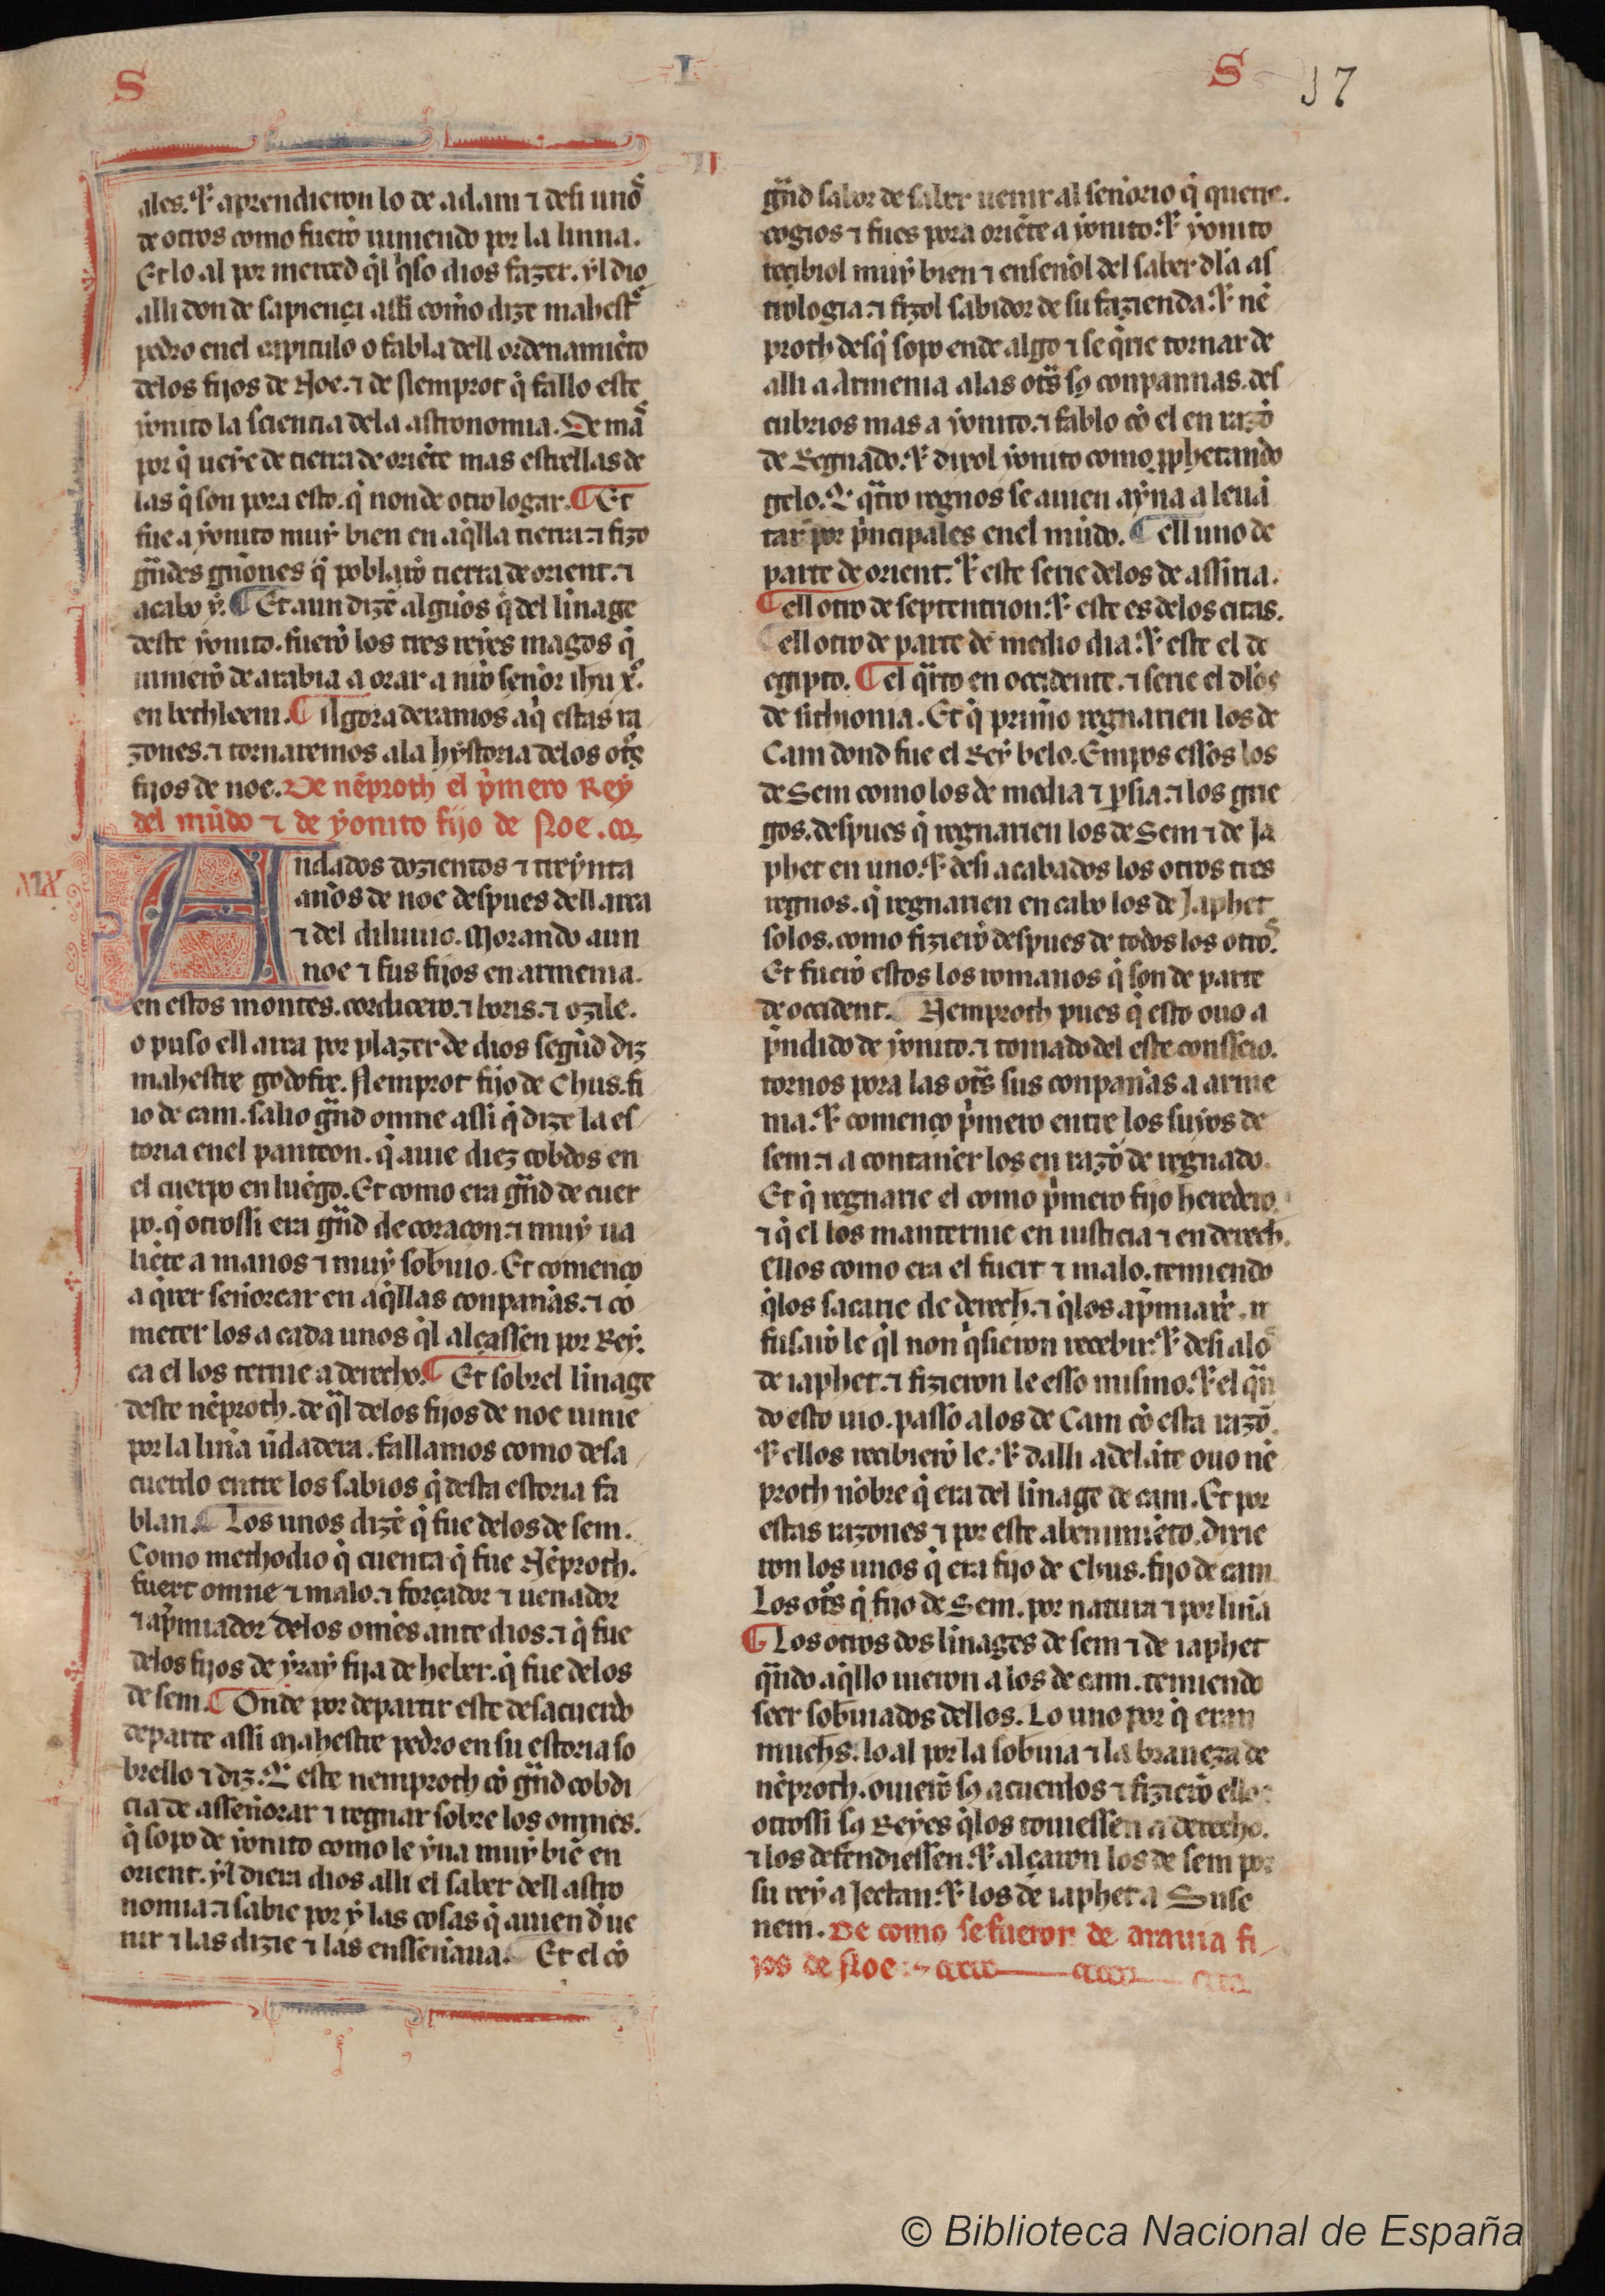 S I S 17
II
ales. ⁊ aprendieron lo de adam ⁊ desi unos
de otros como fuerõ uiniendo por la linna.
Et lo al por merced q̃l q̃so dios fazer. yl dio
alli don de sapiença assi como dize mahestre
pedro enel capitulo o fabla dell ordenamiẽto
delos fijos de Noe. ⁊ de Nemprot q̃ fallo este
yonito la sciencia dela astronomia. De mas
por q̃ ueye de tierra de oriẽte mas estrellas de
las q̃ son pora esto. q̃ non de otro logar. ¶ Et
fue a yonito muy bien en aq̃lla tierra ⁊ fizo
gr̃ndes gñones q̃ poblarõ tierra de orient. ⁊
acabo y. ¶ Et aun dizẽ algunos q̃ del linage
deste yonito. fuerõ los tres reyes magos q̃
uinierõ de arabia a orar a nr̃o señor ihu x̃o.
en bethleem. ¶ Agora dexamos aq̃ estas ra
zones. ⁊ tornaremos ala hystoria delos otr̃s
fijos de noe. De nẽproth el p̃mero Rey
del mũdo ⁊ de yonito fijo de Noe.
XIX
Andados dozientos ⁊ treynta
annos de noe despues dell arca
⁊ del diluuio. Morando aun
noe ⁊ sus fijos en armenia.
en estos montes. corduceo. ⁊ loris. ⁊ ozile.
o puso ell arca por plazer de dios segũd diz
mahestre godofre. Nemprot fijo de Chus. fi
io de cam. salio gr̃nd omne assi q̃ dize la es
toria enel panteon. q̃ auie diez cobdos en
el cuerpo en luẽgo. Et como era gr̃nd de cuer
po. q̃ otrossi era gr̃nd de coraçon. ⁊ muy ua
liẽte a manos ⁊ muy sobuio. Et começo
a q̃rer señorear en aq̃llas conpañas. ⁊ co
meter los a cada unos q̃l alçassen por Rey.
ca el los ternie a derecho. ¶ Et sobrel linage
deste nẽproth. de q̃l delos fijos de noe uinie
por la liña ũdadera. fallamos como desa
cuerdo entre los sabios q̃ desta estoria fa
blan. ¶ Los unos dizẽ q̃ fue delos de sem.
Como methodio q̃ cuenta q̃ fue Nẽproth.
fuert omne ⁊ malo. ⁊ forçador ⁊ uenador
⁊ ap̃miador delos omẽs ante dios. ⁊ q̃ fue
delos fijos de yray fija de heber. q̃ fue delos
de sem. ¶ Onde por departir este desacuerdo
departe assi Mahestre pedro en su estoria so
brello ⁊ diz. ⁊ este nemproth cõ gr̃nd cobdi
cia de asseñorar ⁊ regnar sobre los omnes.
q̃ sopo de yonito como le yua muy biẽ en
orient. yl diera dios alli el saber dell astro
nomia. ⁊ sabie por y las cosas q̃ auien d ue
nir ⁊ las dizie ⁊ las ensseñaua. ¶ Et el cõ
gr̃nd sabor de saber uenir al señorio q̃ querie.
cogios ⁊ fues pora oriẽte a yonito. ⁊ yonito
recibiol muy bien ⁊ enseñol del saber dla as
trologia. ⁊ fizol sabidor de su fazienda. ⁊ nẽ
proth desq̃ sopo ende algo ⁊ se q̃rie tornar de
alli a Armenia alas otr̃s sꝯ conpannas. des
cubrios mas a yonito. ⁊ fablo cõ el en razõ
de Regnado. ⁊ dixol yonito como ꝓphetando
gelo. ⁊ q̃tro regnos se auien ayna a leuã
tar por p̃ncipales enel mũdo. ¶ ell uno de
parte de orient. ⁊ este serie delos de assiria.
¶ ell otro de septentrion. ⁊ este es delos citas.
¶ ell otro de parte de medio dia. ⁊ este el de
egipto. ¶ el q̃rto en occidente. ⁊ serie el dlos
de sithionia. Et q̃ primo regnarien los de
Cam dond fue el Rey belo. Empos essos los
de Sem como los de media ⁊ ꝑsia. ⁊ los grie
gos. despues q̃ regnarien los de Sem ⁊ de Ja
phet en uno. ⁊ desi acabados los otros tres
regnos. q̃ regnarien en cabo los de Japhet
solos. como fizierõ despues de todos los otros.
Et fuerõ estos los romanos q̃ son de parte
de occident. ¶ Nemproth pues q̃ esto ouo a
p̃ndido de yonito. ⁊ tomado del este conssejo.
tornos pora las otr̃s sus conpañas a arme
nia. ⁊ començo p̃mero entre los suyos de
sem. ⁊ a contañer los en razõ de regnado.
Et q̃ regnarie el como p̃mero fijo heredero.
⁊ q̃ el los manternie en iusticia ⁊ en derech.
Ellos como era el fuert ⁊ malo. temiendo
q̃los sacarie de derech. ⁊ q̃los ap̃miarie. re
fusarõ le q̃l non q̃sieron recebir. ⁊ desi alos
de iaphet. ⁊ fizieron le esso mismo. ⁊ el qñ
do esto uio. passo alos de Cam cõ esta razõ.
⁊ ellos recibierõ le. ⁊ dalli adelãte ouo nẽ
proth nõbre q̃ era del linage de cam. Et por
estas razones ⁊ por este abenimiẽto. dixie
ron los unos q̃ era fijo de Chus. fijo de cam.
Los otr̃s q̃ fijo de Sem. por natura ⁊ por liña
¶ Los otros dos linages de sem ⁊ de iaphet
qñdo aq̃llo uieron a los de cam. temiendo
seer sobuiados dellos. Lo uno por q̃ eran
muchs. lo al por la sobuia ⁊ la braueza de
nẽproth. ouierõ sꝯ acuerdos ⁊ fizierõ ellos
otrossi sꝯ Reyes q̃los touiessen a derecho.
⁊ los defendiessen. ⁊ alçaron los de sem por
su rey a Jectan. ⁊ los de iaphet a Suse
nem. De como se fueron de arauia fi
jos de Noe
© Biblioteca Nacional de España